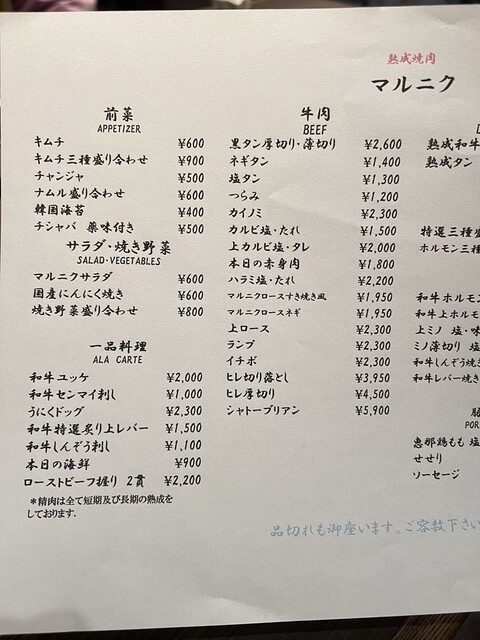 熟成焼肉
マルニク
前菜
APPETIZER
キムチ ¥600
キムチ三種盛り合わせ ¥900
チャンジャ ¥500
ナムル盛り合わせ ¥600
韓国海苔 ¥400
チシャバ 薬味付き ¥500
サラダ・焼き野菜
SALAD・VEGETABLES
マルニクサラダ ¥600
国産にんにく焼き ¥600
焼き野菜盛り合わせ ¥800
一品料理
ALA CARTE
和牛ユッケ ¥2,000
和牛センマイ刺し ¥1,000
うにくドッグ ¥2,300
和牛特選炙り上レバー ¥1,500
和牛しんぞう刺し ¥1,100
本日の海鮮 ¥900
ローストビーフ握り 2貫 ¥2,200
*精肉は全て短期及び長期の熟成を
しております.
牛肉
BEEF
黒タン厚切り・薄切り ¥2,600
ネギタン ¥1,400
塩タン ¥1,300
つらみ ¥1,200
カイノミ ¥2,300
カルビ塩・たれ ¥1,500
上カルビ塩・タレ ¥2,000
本日の赤身肉 ¥1,800
ハラミ塩・たれ ¥2,200
マルニクロースすき焼き風 ¥1,950
マルニクロースネギ ¥1,950
上ロース ¥2,300
ランプ ¥2,300
イチボ ¥2,300
ヒレ切り落とし ¥3,950
ヒレ厚切り ¥4,500
シャトーブリアン ¥5,900
熟成和牛
熟成タン
特選三種盛
ホルモン三種
和牛ホルモン
和牛上ホルモ
上ミノ 塩・味
ミノ薄切り 塩
和牛しんぞう焼き
和牛レバー焼き
豚
POR
恵那鶏もも 塩
せせり
ソーセージ
品切れも御座います。ご容赦下さい